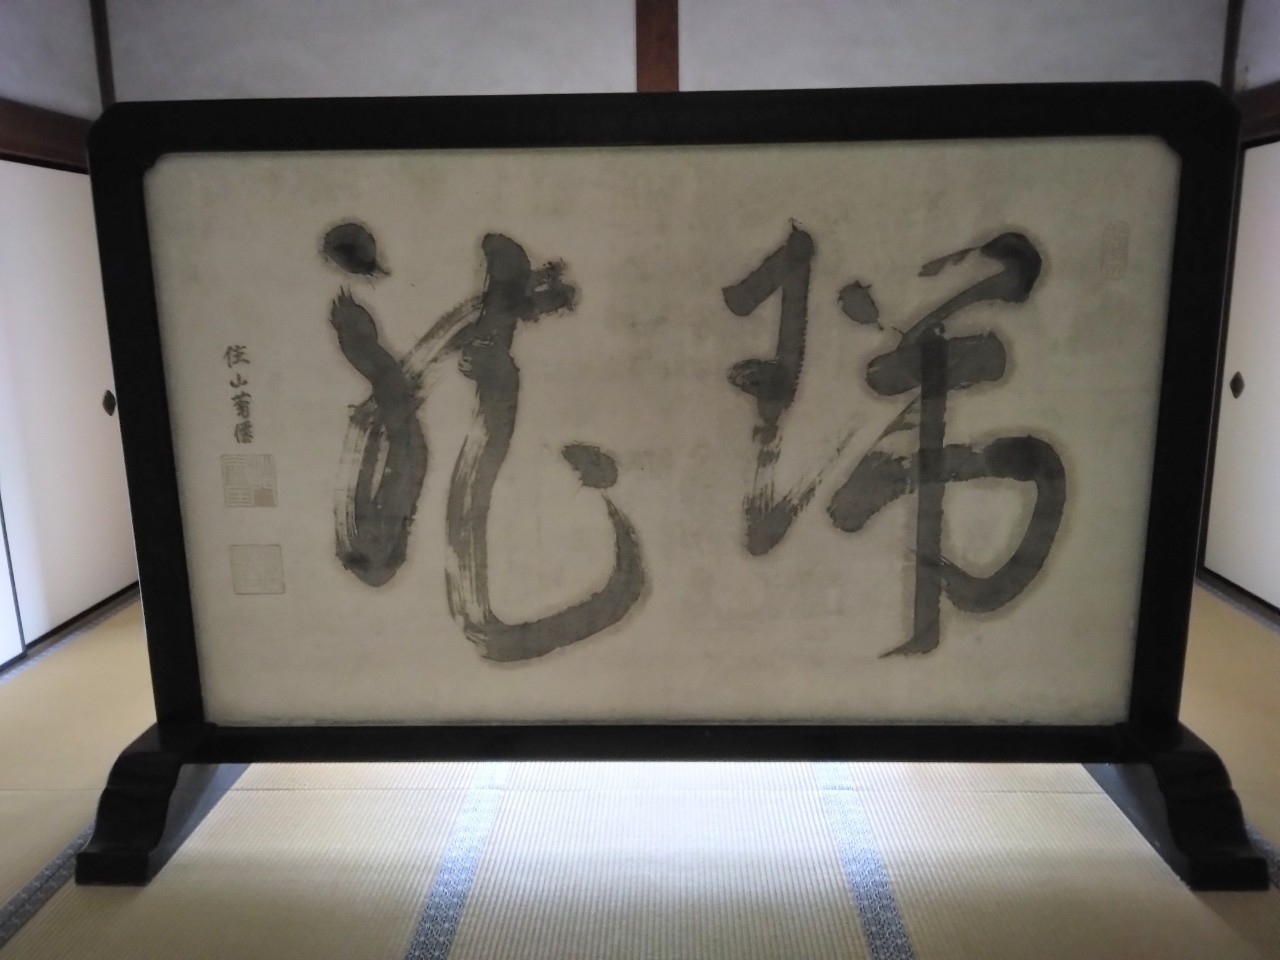 瑞龍
住山菊僊